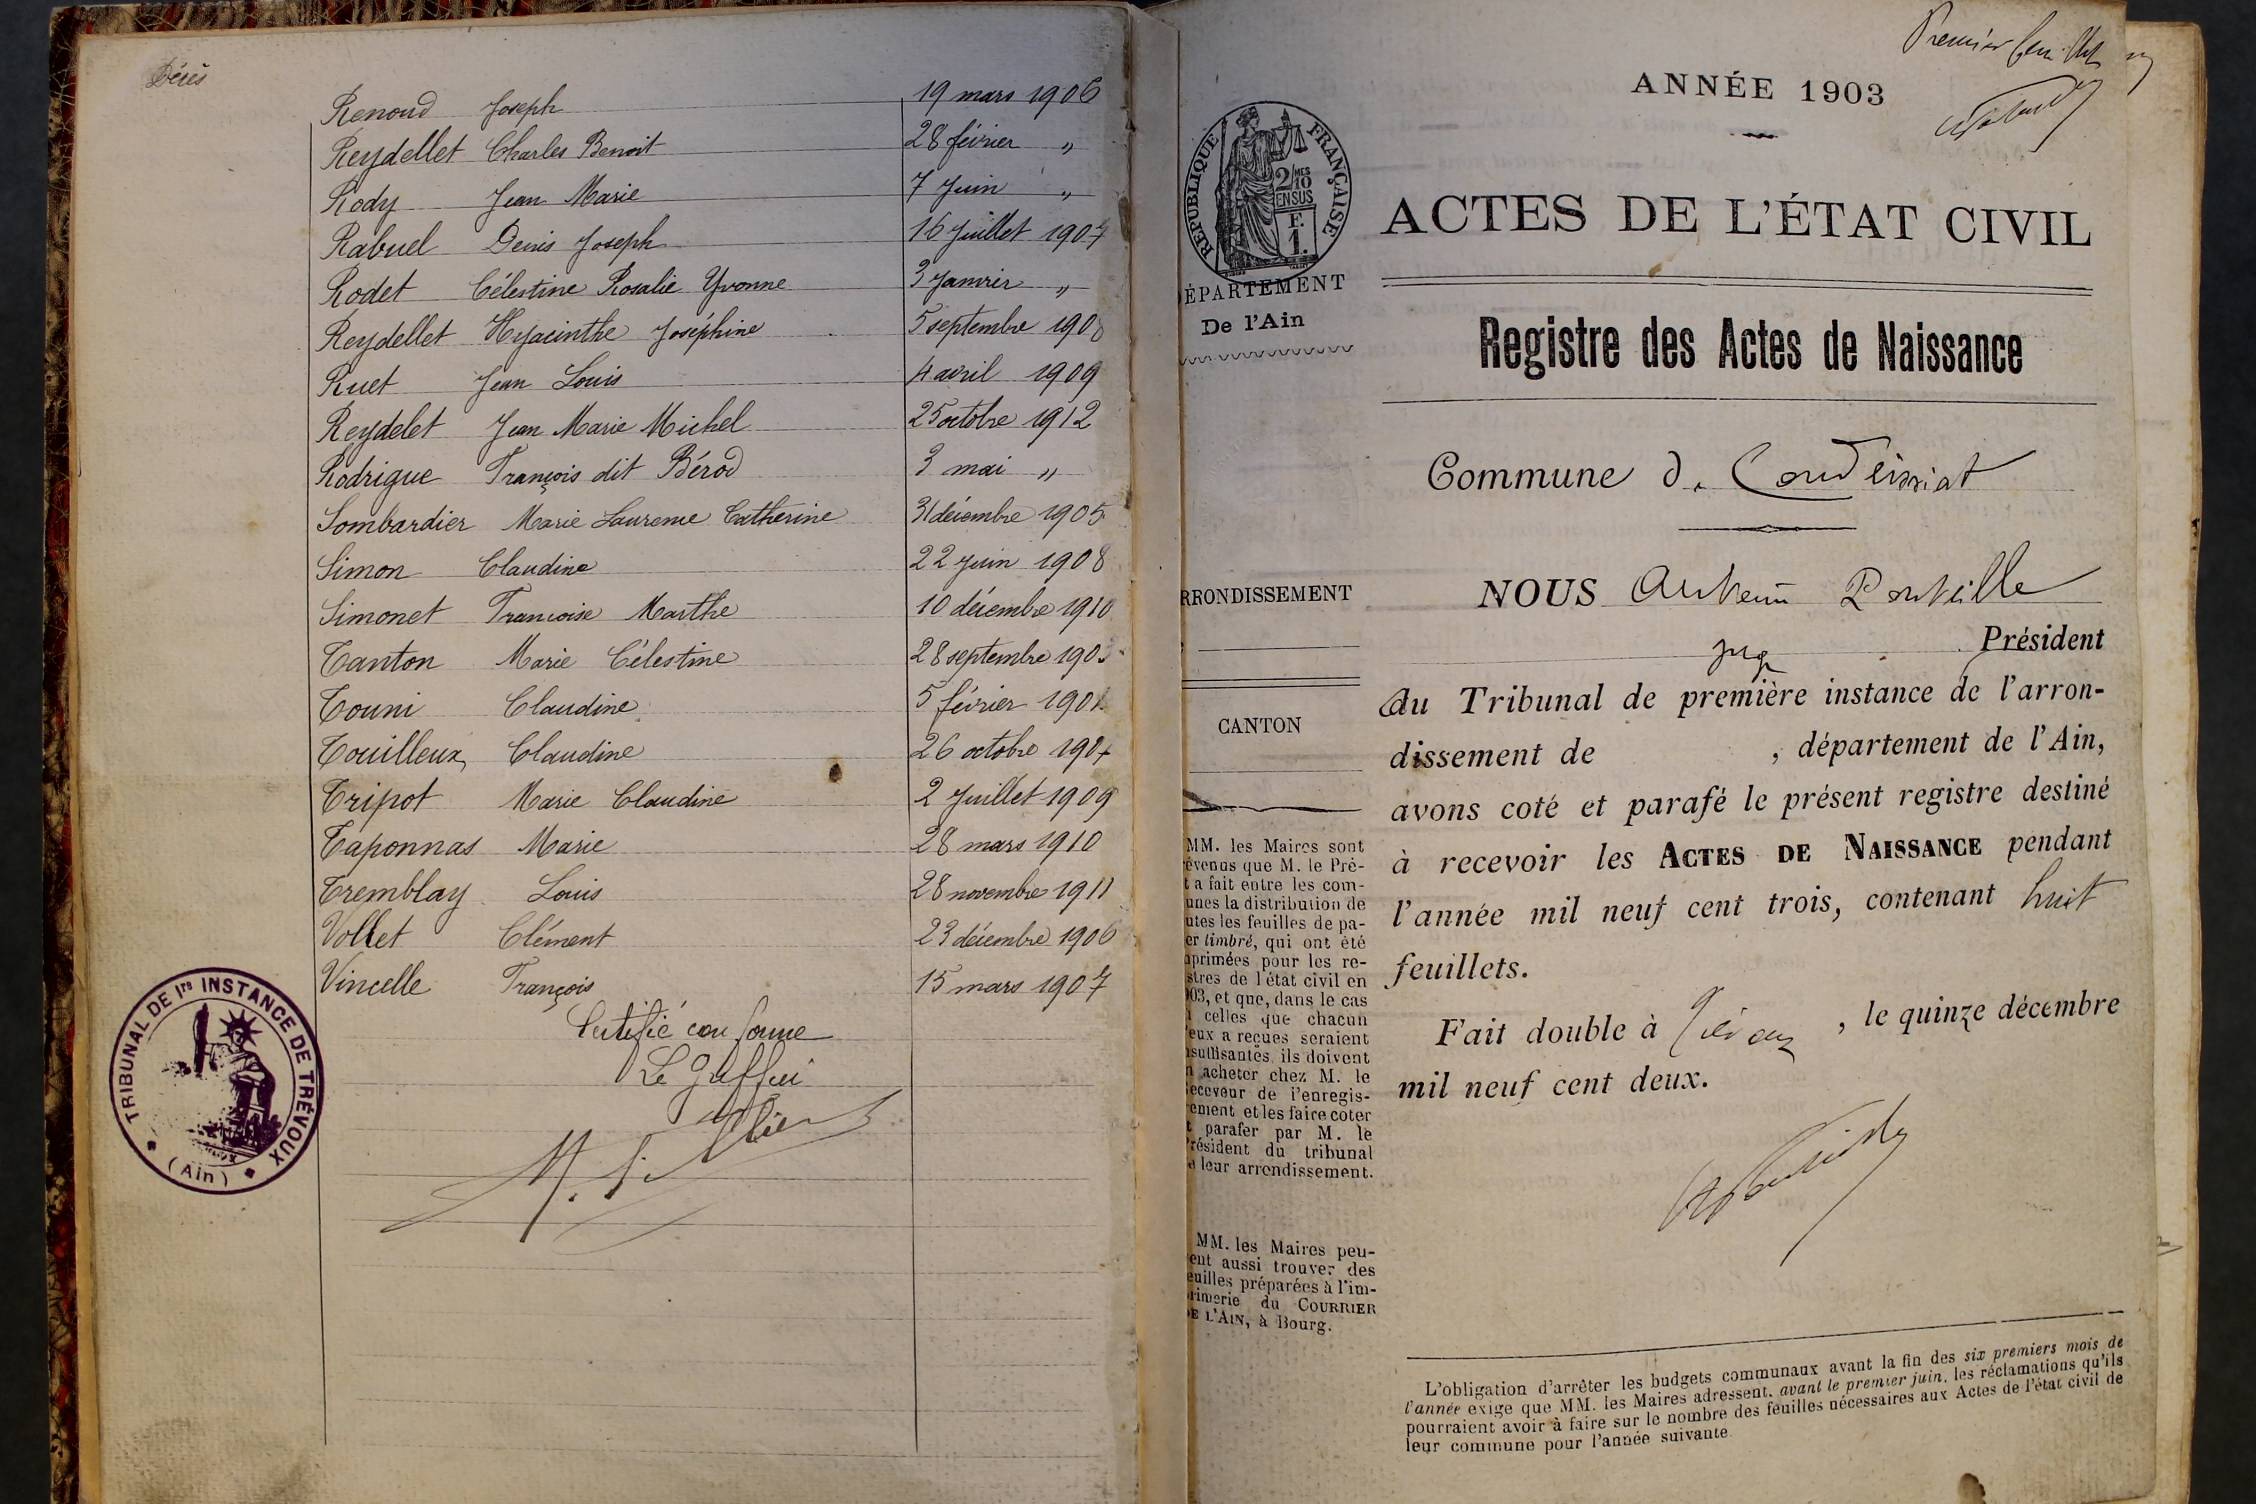 Décès
Renoud Joseph 19 mars 1906
Reydellet Charles Benoit 28 février "
Rody Jean Marie 7 Juin "
Rabuel Denis Joseph 16 Juillet 1907
Rodet Célestine Rosalie Yvonne 3 Janvier "
Reydellet Hyacinthe Joséphine 5 septembre 1908
Ruet Jean Louis 4 avril 1909
Reydelet Jean Marie Michel 25 octobre 1912
Rodrigue François dit Bérod 3 mai "
Sombardier Marie Laurence Catherine 31 décembre 1905
Simon Claudine 22 Juin 1908
Simonet Francoise Marthe 10 décembre 1910
Tanton Marie Célestine 28 septembre
Touni Claudine 5 février
Touilleux Claudine 26 octobre 1907
Tripot Marie Claudine 2 Juillet 1909
Taponnas Marie 28 mars 1910
Tremblay Louis 28 novembre 1911
Vollet Clément 23 décembre 1906
Vincelle François 15 mars 1907
Certifié conforme
Le Greffier
TRIBUNAL DE 1re INSTANCE DE TRÉVOUX
(Ain)
Premier feuillet
ANNÉE 1903
RÉPUBLIQUE FRANÇAISE
2/10 MES
EN SUS
F.
1.
ACTES DE L'ÉTAT CIVIL
ÉPARTEMENT
De l'Ain
Registre des Actes de Naissance
Commune de Condeissiat
RRONDISSEMENT
NOUS
juge Président
CANTON
du Tribunal de première instance de l'arron-
dissement de , département de l'Ain,
avons coté et parafé le présent registre destiné
à recevoir les ACTES DE NAISSANCE pendant
l'année mil neuf cent trois, contenant huit
feuillets.
Fait double à Trévoux, le quinze décembre
mil neuf cent deux.
MM. les Maires sont
évenus que M. le Pré-
t a fait entre les com-
unes la distribution de
utes les feuilles de pa-
er timbré, qui ont été
primées pour les re-
stres de l'état civil en
03, et que, dans le cas
celles que chacun
'eux a reçues seraient
nsuffisantes, ils doivent
n acheter chez M. le
eceveur de l'enregis-
ement et les faire coter
t parafer par M. le
résident du tribunal
e leur arrondissement.
MM. les Maires peu-
ent aussi trouver des
euilles préparées à l'im-
rimerie du COURRIER
DE L'AIN, à Bourg.
L'obligation d'arrêter les budgets communaux avant la fin des six premiers mois de
l'année exige que MM. les Maires adressent, avant le premier juin, les réclamations qu'ils
pourraient avoir à faire sur le nombre des feuilles nécessaires aux Actes de l'état civil de
leur commune pour l'année suivante.